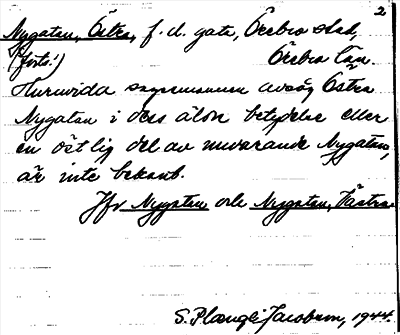 2
Nygatan, Östra, f.d. gata, Örebro stad,
(forts.) Örebro län.
Huruvida sagesmannen avsåg Östra
Nygatan i dess äldre betydelse eller
en östlig del av nuvarande Nygatan,
är inte bekant.
Jfr Nygatan och Nygatan, Västra.
S. Plænge Jacobson, 1944.